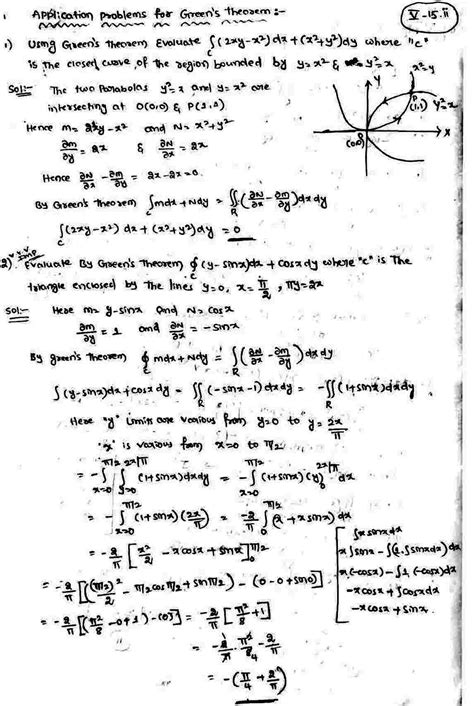 V-15.ii
1 Application Problems for Green's Theorem:-
1) Using Green's theorem Evaluate ∫c (2xy-x²)dx+(x²+y²)dy where "c"
is the closed curve of the region bounded by y=x² & y²=x
Sol:- The two Parabolas y²=x and y=x² are
intersecting at O(0,0) & P(1,1)
x²=y
Y
P
(1,1)
y²=x
X
(0,0)
Hence m= 2xy-x² and N= x²+y²
∂m/∂y = 2x & ∂N/∂x = 2x
Hence ∂N/∂x - ∂m/∂y = 2x-2x=0.
By Green's Theorem ∫c mdx+Ndy = ∬R (∂N/∂x - ∂m/∂y) dxdy
∫c (2xy-x²) dx + (x²+y²)dy = 0
Imp
2) Evaluate By Green's Theorem ∮c (y-sinx)dx + cosxdy where "c" is The
triangle enclosed by the lines y=0, x=π/2, πy=2x
Sol:- Here m= y-sinx and N= cosx
∂m/∂y = 1 and ∂N/∂x = -sinx
By green's theorem ∮c mdx+Ndy = ∬R (∂N/∂x - ∂m/∂y) dxdy
∫(y-sinx)dx+cosxdy = ∬R (-sinx-1)dxdy = -∬R (1+sinx)dxdy
Here "y" limits are various from y=0 to y=2x/π
"x" is various from x=0 to π/2
= -∫x=0^π/2 ∫y=0^2x/π (1+sinx)dxdy = -∫x=0^π/2 (1+sinx)(y)0^2x/π dx
= -∫x=0^π/2 (1+sinx)(2x/π) = -2/π ∫0^π/2 (x+xsinx)dx
= -2/π [x²/2 - xcosx + sinx]0^π/2
= -2/π [((π/2)²/2 - π/2cosπ/2+sinπ/2) - (0-0+sin0)]
= -2/π [(π²/8 -0+1)-(0)] = -2/π [π²/8 +1]
= -2/π · π²/8 4 - 2/π
= -(π/4 + 2/π)
∫xsinxdx
x∫sinx-∫(1.∫sinxdx)dx
x(-cosx)-∫1(-cosx)dx
-xcosx+∫cosxdx
-xcosx+sinx.